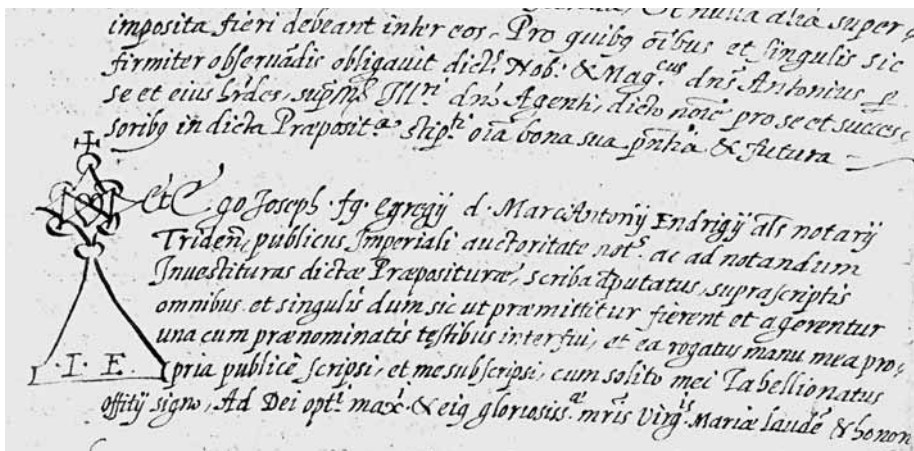 Et nulla alia super
imposita fieri debeant inter eos. Pro quibq oībus et singulis sic
firmiter observādis obligavit dict. Nob. & Mag.cus dns Antonius
se et eius hrdes, dnō Agenti, dicto noīe pro se et succes,
soribq in dicta Præposit.a stip.ti oīa bona sua pntia & futura
Et Ego Joseph fq. Egregij d. Marci Antonij Endrigij als notarij
Triden. publicus Imperiali auctoritate not.s ac ad notandum
Investituras dictæ Præposituræ, scriba dputatus, suprascriptis
omnibus et singulis dum sic ut præmittitur fierent et agerentur
una cum prænominatis testibus interfui, et ea rogatus manu mea pro,
pria publicè scripsi, et me subscripsi, cum solito mei Tabellionatus
.I. E.
offitij signo, Ad Dei opt.i max.i & eiq gloriosiss.æ mris Virg.is Mariæ laudē & honor